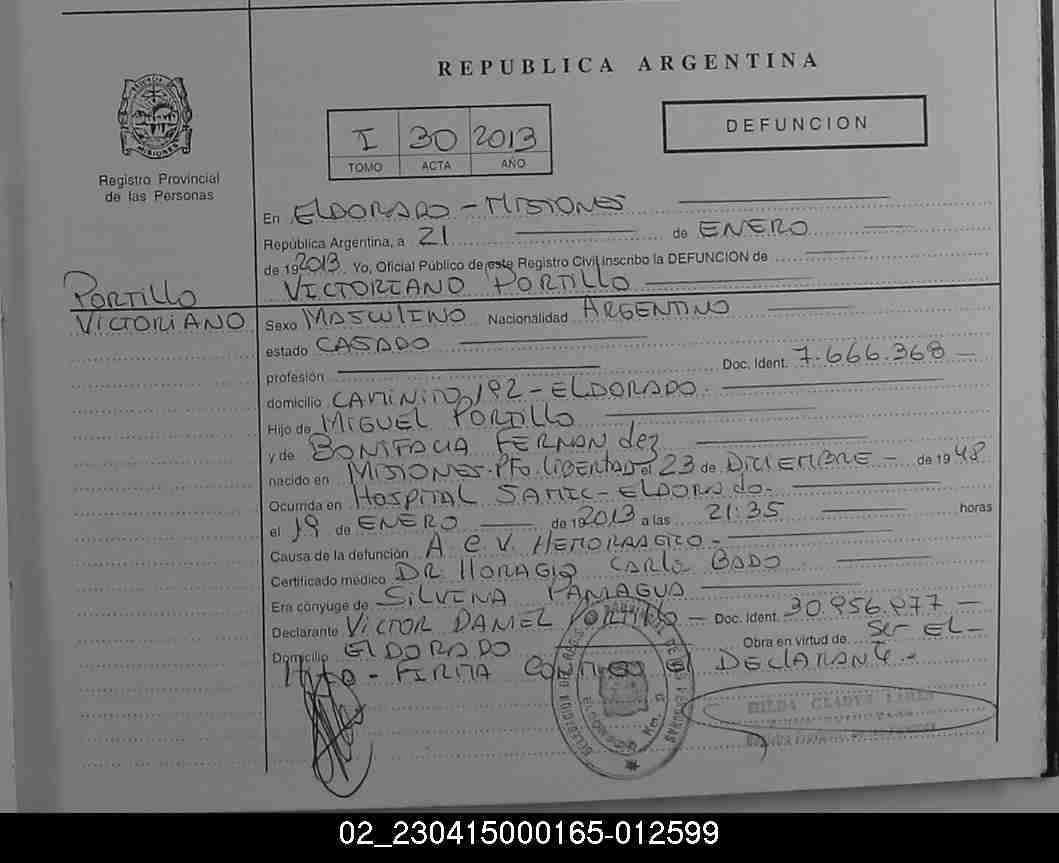 REPUBLICA ARGENTINA
I 30 2013
TOMO ACTA AÑO
DEFUNCION
Registro Provincial
de las Personas
En ELDORADO - MISIONES
República Argentina, a 21 de ENERO
de 19 2013. Yo, Oficial Público de este Registro Civil inscribo la DEFUNCION de
VICTORIANO PORTILLO
PORTILLO
VICTORIANO
Sexo MASCULINO Nacionalidad ARGENTINO
estado CASADO
profesión Doc. Ident. 7.666.368
domicilio CAMINITO 192 - ELDORADO
Hijo de MIGUEL PORTILLO
y de BONIFACIA FERNANdez
nacido en MISIONES. Pto. LIBERTAD el 23 de DICIEMBRE - de 1948
Ocurrida en HOSPITAL SAMIC - ELDORAdo.
el 19 de ENERO de 19 2013 a las 21:35 horas
Causa de la defunción A C V HEMORRAGICO -
Certificado médico DR HORACIO CARLOS BADO
Era cónyuge de SILVINA PANIAGUA
Declarante VICTOR DANIEL PORTILLO - Doc. Ident. 30.956.977
Domicilio ELDORADO Obra en virtud de Ser EL -
HIJO - FIRMA CONMIGO El DECLARANTE -
HILDA GLADYS
02_230415000165-012599